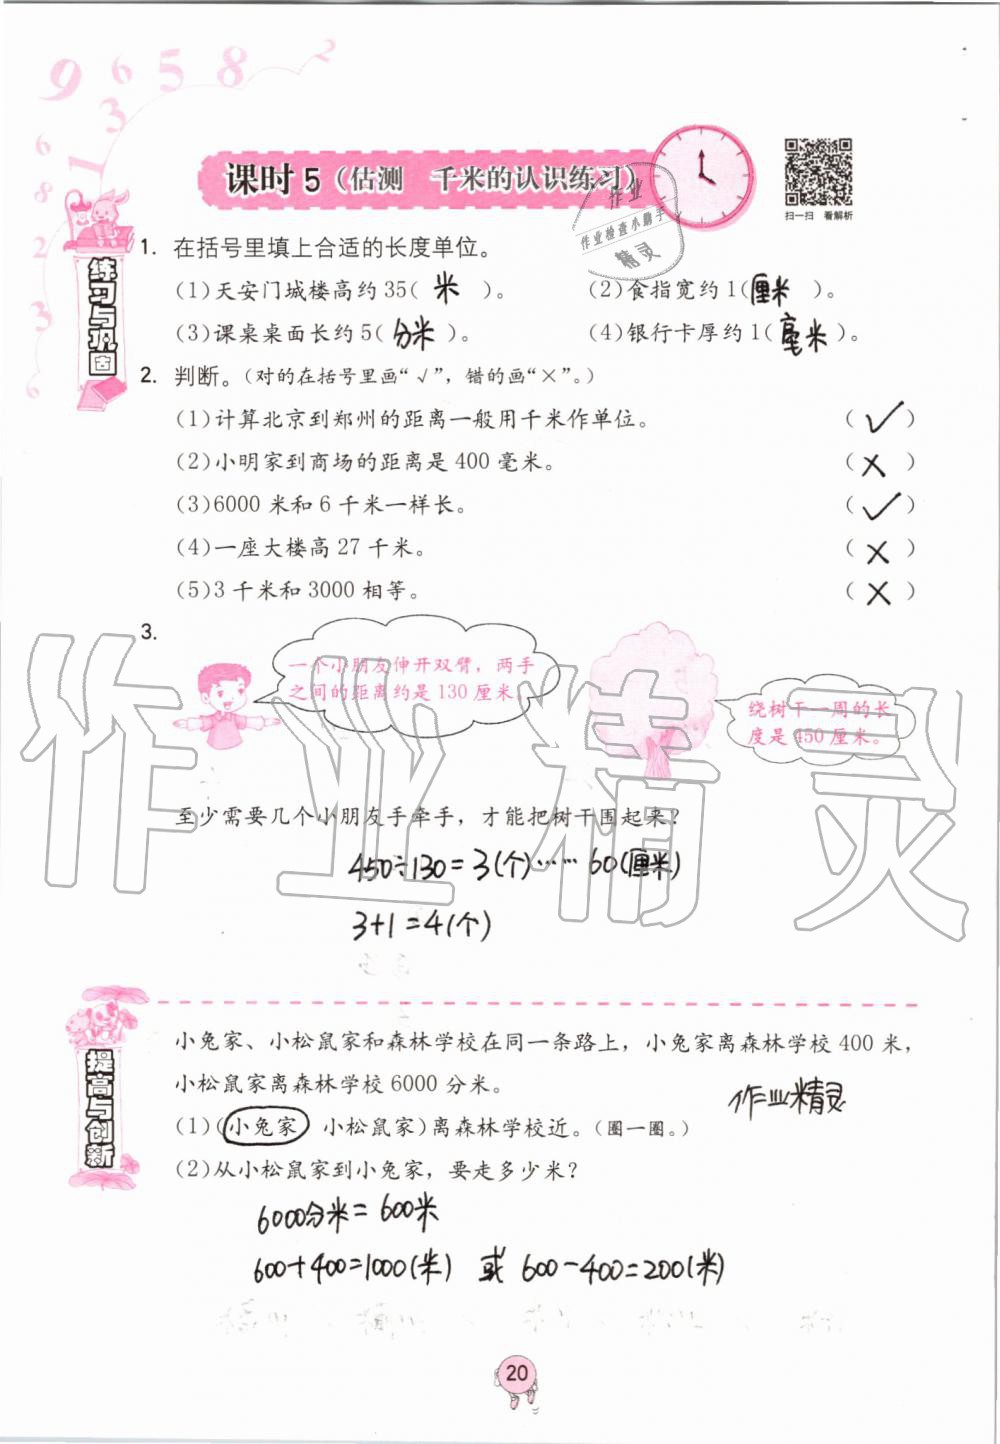 9 6 5 8 2
3
1
6
8
2
3
6
课时5(估测 千米的认识练习)
扫一扫 看解析
作业
作业检查小助手
精灵
练习与巩固
1. 在括号里填上合适的长度单位。
(1)天安门城楼高约35( 米 )。 (2)食指宽约1( 厘米 )。
(3)课桌桌面长约5( 分米 )。 (4)银行卡厚约1( 毫米 )。
2. 判断。(对的在括号里画“√”，错的画“×”。)
(1)计算北京到郑州的距离一般用千米作单位。 ( √ )
(2)小明家到商场的距离是400毫米。 ( × )
(3)6000米和6千米一样长。 ( √ )
(4)一座大楼高27千米。 ( × )
(5)3千米和3000相等。 ( × )
3.
一个小朋友伸开双臂，两手
之间的距离约是130厘米。
绕树干一周的长
度是450厘米。
作业精灵
至少需要几个小朋友手牵手，才能把树干围起来？
450÷130=3(个)……60(厘米)
3+1=4(个)
提高与创新
小兔家、小松鼠家和森林学校在同一条路上，小兔家离森林学校400米，
小松鼠家离森林学校6000分米。
作业精灵
(1)(小兔家 小松鼠家)离森林学校近。(圈一圈。)
(2)从小松鼠家到小兔家，要走多少米？
6000分米=600米
600+400=1000(米) 或 600-400=200(米)
20